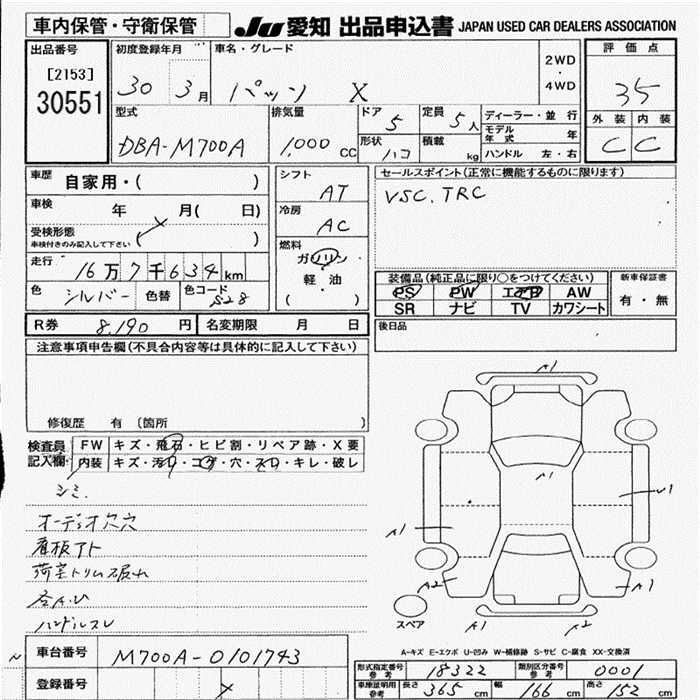 車内保管・守衛保管
JU 愛知 出品申込書 JAPAN USED CAR DEALERS ASSOCIATION
出品番号
[2153]
30551
初度登録年月
30 3月
車名・グレード
パッソ X
2WD
・
4WD
評価点
35
外装 内装
C C
型式
DBA-M700A
排気量
1,000 cc
ドア 5
形状 ハコ
定員 5人
積載 kg
ディーラー・並行
モデル年式 年
ハンドル 左・右
車歴 自家用・( )
車検 年 月( 日)
受検形態
車検付きのみ記入して下さい ( )
走行 16万7千634km
色 シルバー 色替 色コード S28
シフト AT
冷房 AC
燃料
ガソリン
軽・油
( )
セールスポイント(正常に機能するものに限ります)
VSC. TRC
装備品(純正品に限り○をつけてください)
PS PW エアB AW
SR ナビ TV カワシート
新車保証書
有・無
R券 8,190円 名変期限 月 日
後日品
注意事項申告欄(不具合内容等は具体的に記入して下さい)
修復歴 有 〔箇所 〕
検査員
記入欄
FW キズ・飛石・ヒビ割・リペア跡・X要
内装 キズ・汚れ・コゲ・穴・スレ・キレ・破レ
シミ.
オーディオ欠穴
看板アト
荷室トリム破れ
各A.U
ハンドルスレ
A1
A1
U1
A1
A2
A1
A1
A2
スペア
A-キズ E-エクボ U-凹み W-補修跡 S-サビ C-腐食 XX-交換済
車台番号 M700A-0101743
登録番号
形式指定番号
参考
18322
類別区分番号
参考
0001
車庫証明用
参考
長さ 365 cm 幅 166 cm 高さ 152 cm